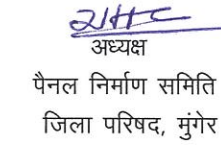 अध्यक्ष
पैनल निर्माण समिति
जिला परिषद, मुंगेर